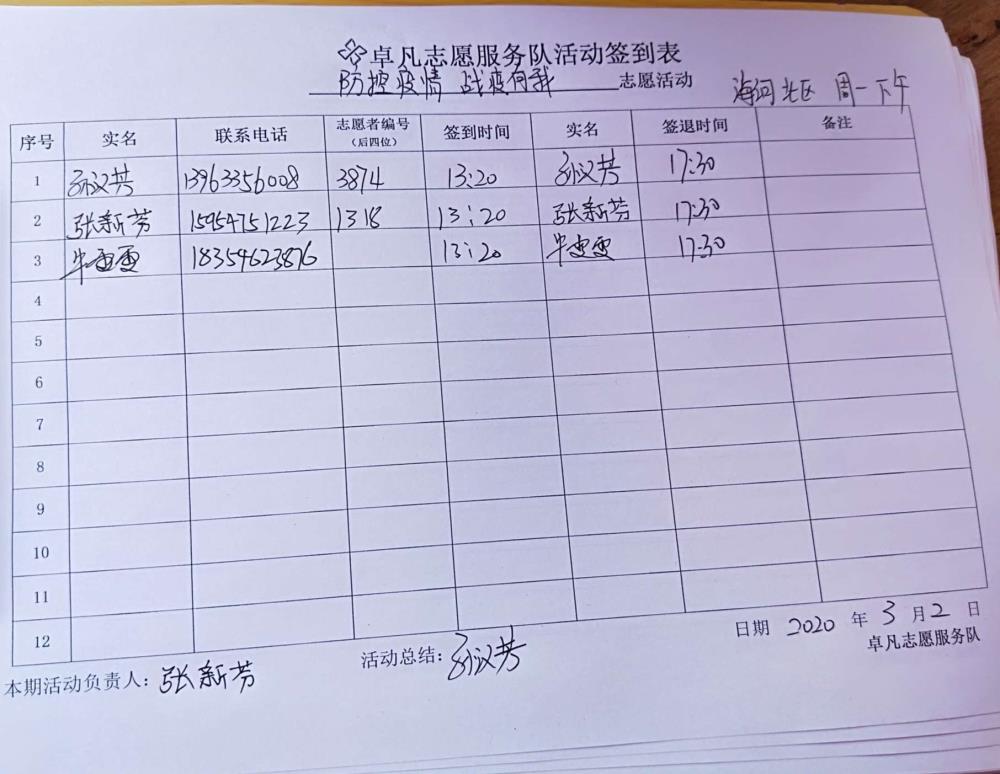 卓凡志愿服务队活动签到表
防控疫情 战疫有我 志愿活动 海河北区 周一下午
序号 实名 联系电话 志愿者编号(后四位) 签到时间 实名 签退时间 备注
1 孙汉芳 13963356008 3874 13:20 孙汉芳 17:30
2 张新芳 15954751223 1318 13:20 张新芳 17:30
3 18354623876 13:20 17:30
4
5
6
7
8
9
10
11
12
日期 2020 年 3 月 2 日
卓凡志愿服务队
本期活动负责人: 张新芳 活动总结: 孙汉芳